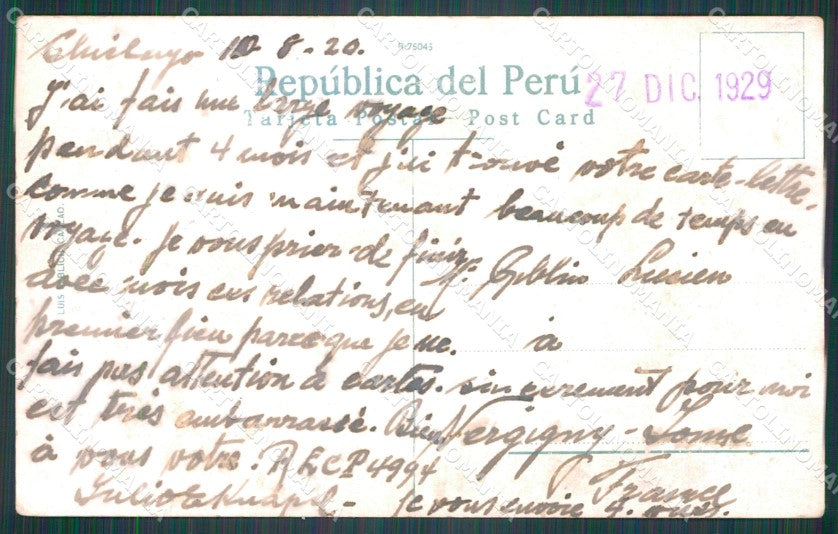 Chiclayo 10 8-20.
R-75045
República del Perú
27 DIC. 1929
J'ai fais une large voyage
Tarjeta Postal - Post Card
pendant 4 mois et j'ai trouvé votre carte-lettre,
comme je suis maintenant beaucoup de temps en
voyage. Je vous prier de finir
Mr. Goblin Lucien
avec mois ces relations, en
premier lieu parceque je ne.
à
fais pas attention à cartes. sincerement pour moi
est très embarrassé. Bien
Vergigny - Yonne
à vous votre. RECP 4994
France
Julio E Knapp -
je vous envoie 4. vues.
LUIS